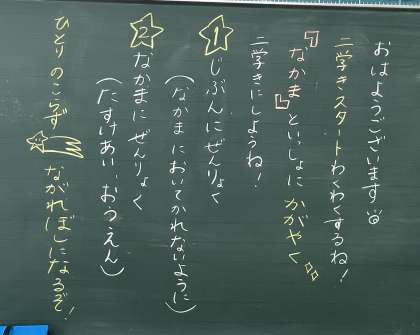 おはようございます
二学きスタートわくわくするね！
『なかま』といっしょに かがやく
二学きにしようね！
1 じぶんにぜんりょく
（なかまにおいてかれないように）
2 なかまにぜんりょく
（たすけあい、おうえん）
ひとりのこらず ながれぼしになるぞ！